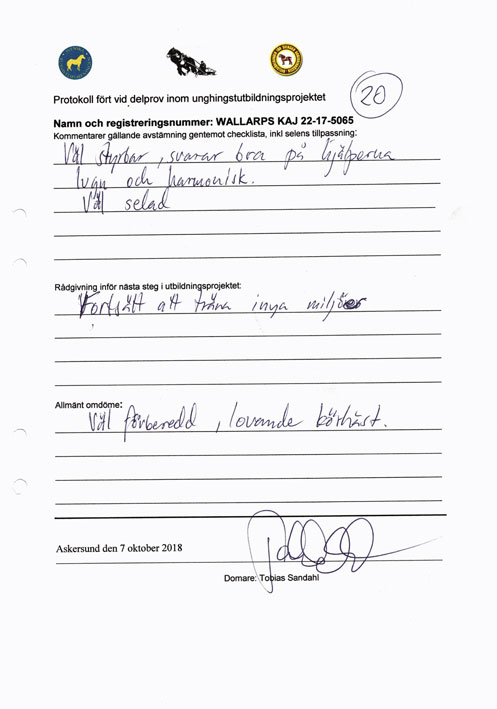 Protokoll fört vid delprov inom unghingstutbildningsprojektet
20
Namn och registreringsnummer: WALLARPS KAJ 22-17-5065
Kommentarer gällande avstämning gentemot checklista, inkl selens tillpassning:
Väl styrbar, svarar bra på hjälperna
lugn och harmonisk.
Väl selad
Rådgivning inför nästa steg i utbildningsprojektet:
Fortsätt att träna inya miljöer
Allmänt omdöme:
Väl förberedd, lovande körhäst.
Askersund den 7 oktober 2018
Domare: Tobias Sandahl